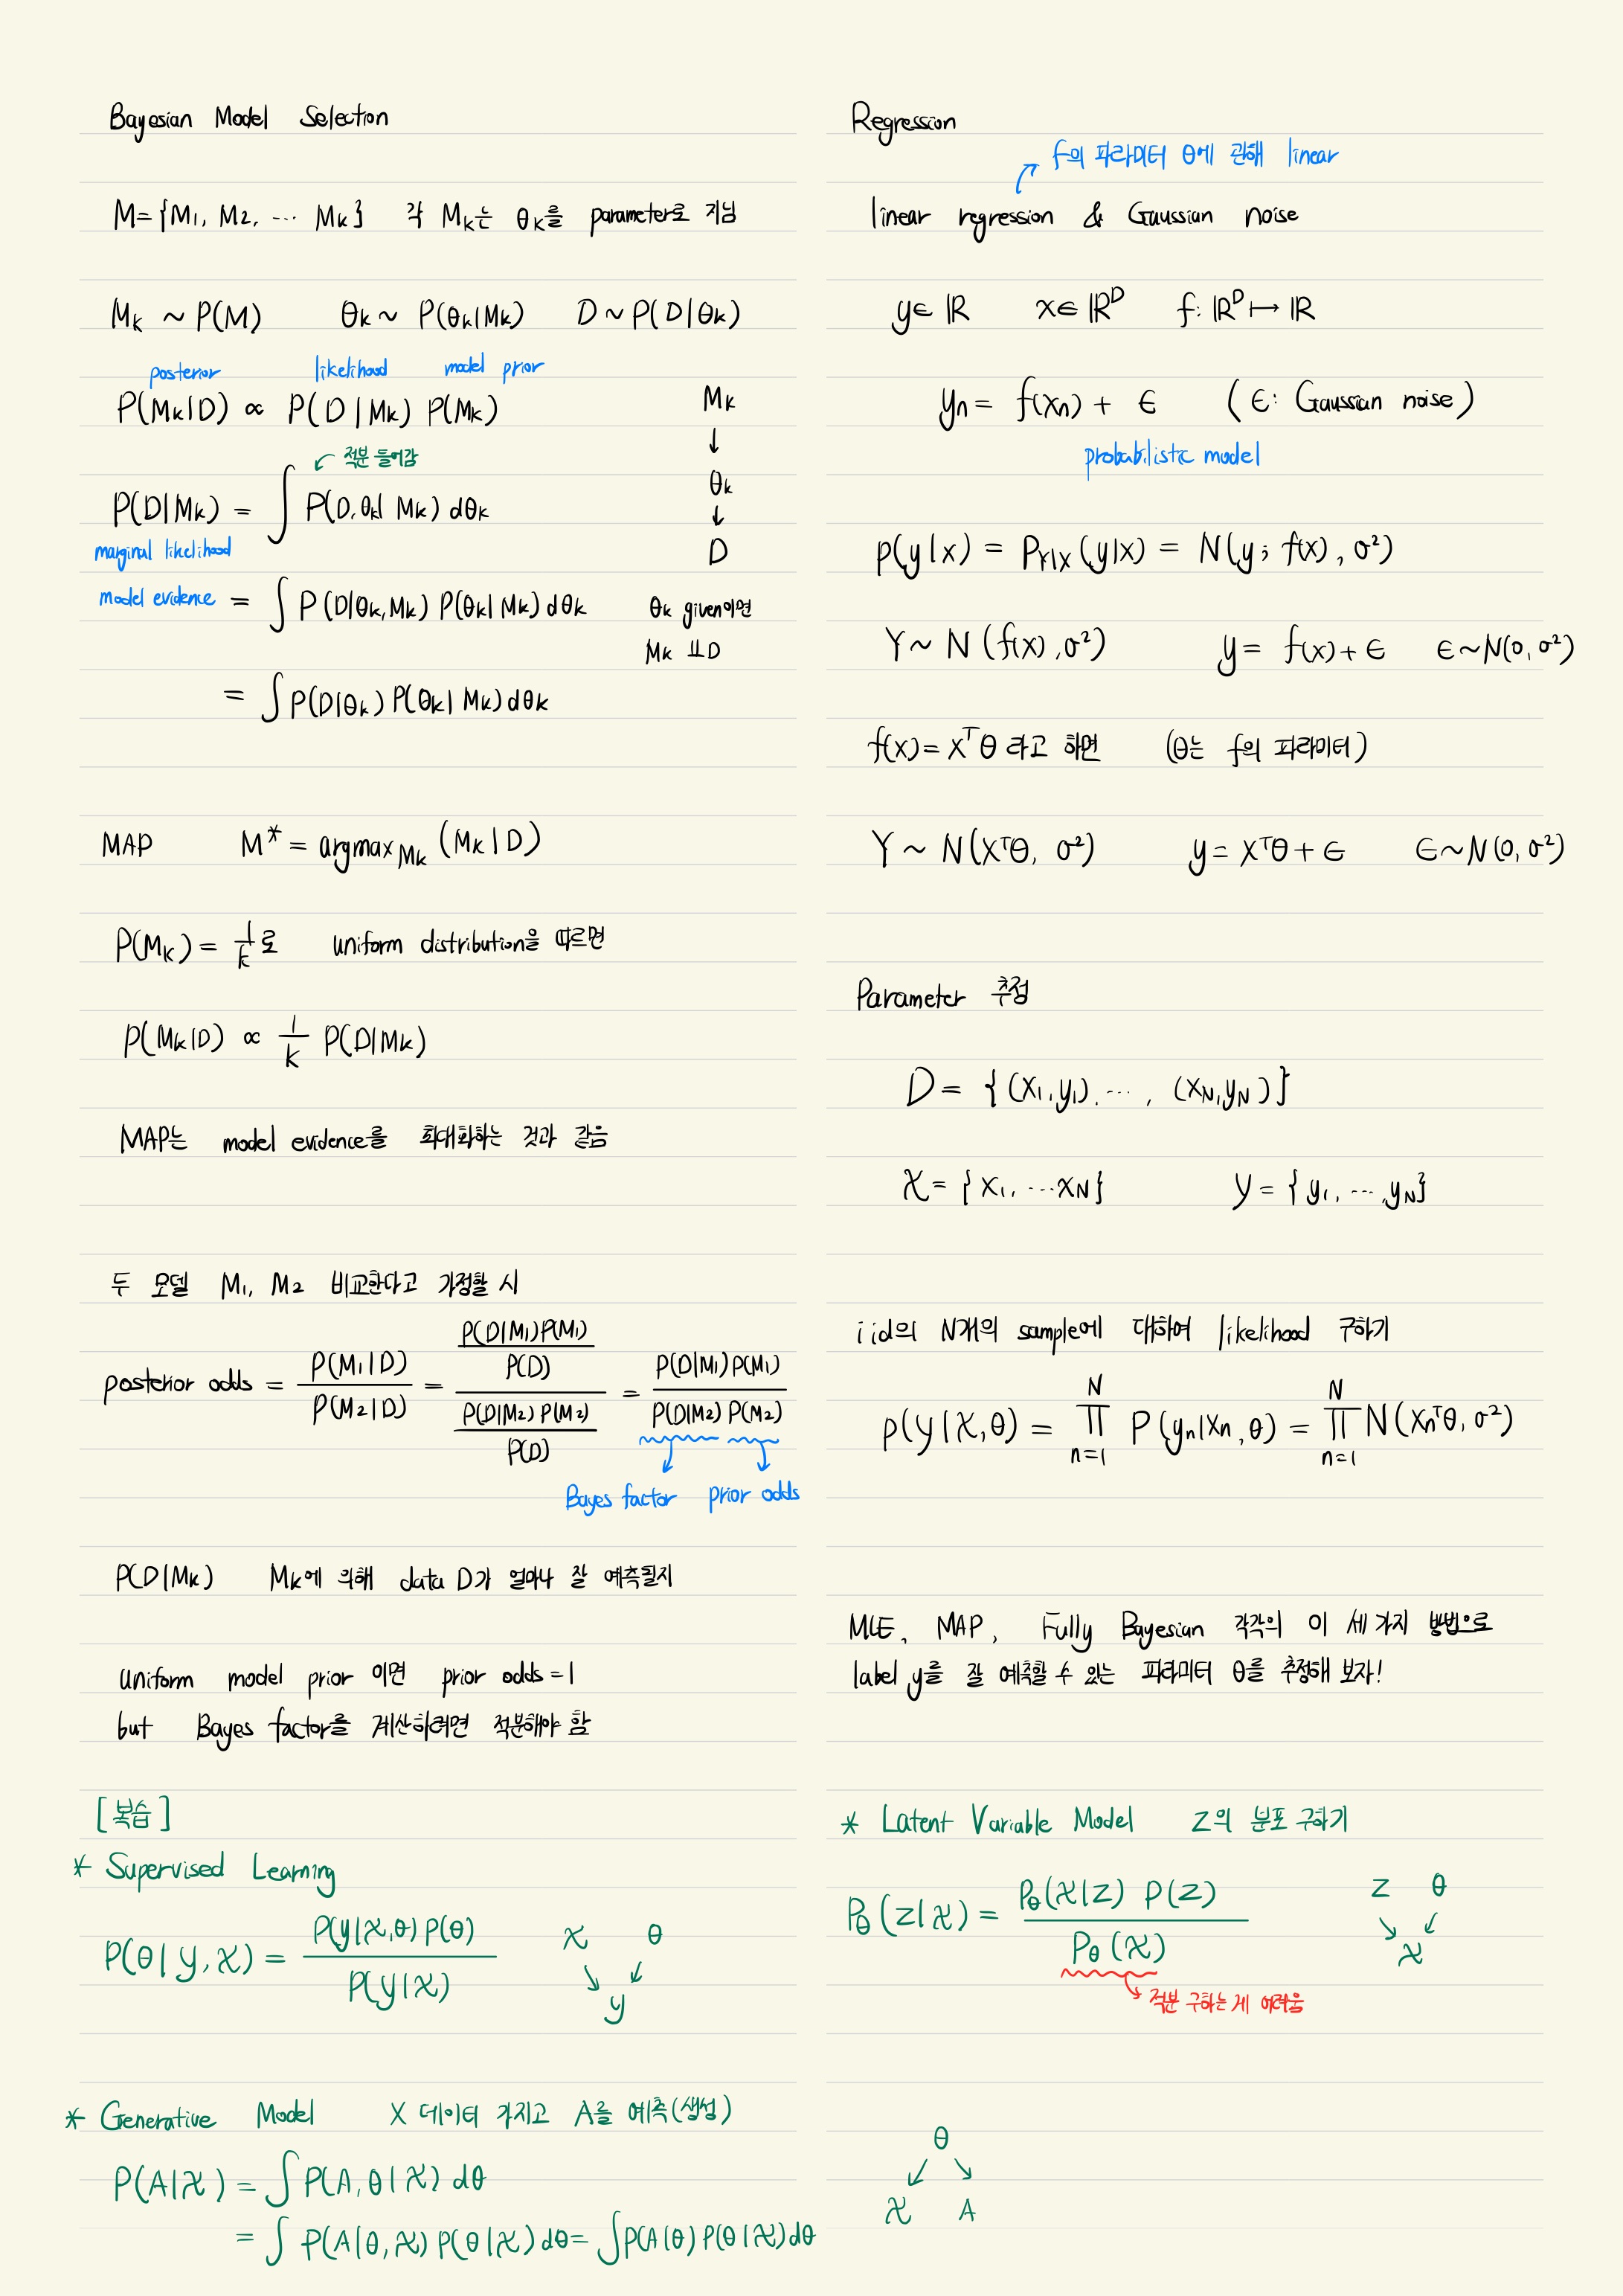 Bayesian Model Selection
M={M1, M2, ... Mk} 각 Mk는 θk를 parameter로 지님
Mk ~ P(M) θk ~ P(θk|Mk) D ~ P(D|θk)
posterior likelihood model prior
P(Mk|D) ∝ P(D|Mk) P(Mk)
Mk
↓
θk
↓
D
적분 들어감
P(D|Mk) = ∫ P(D,θk|Mk) dθk
marginal likelihood
model evidence = ∫ P(D|θk,Mk) P(θk|Mk) dθk
θk given이면
Mk ⫫ D
= ∫ P(D|θk) P(θk|Mk) dθk
MAP M* = argmax Mk (Mk|D)
P(Mk) = 1/k로 uniform distribution을 따르면
P(Mk|D) ∝ 1/k P(D|Mk)
MAP는 model evidence를 최대화하는 것과 같음
두 모델 M1, M2 비교한다고 가정할 시
posterior odds = P(M1|D) / P(M2|D) = (P(D|M1)P(M1) / P(D)) / (P(D|M2)P(M2) / P(D)) = P(D|M1)P(M1) / P(D|M2)P(M2)
Bayes factor prior odds
P(D|Mk) Mk에 의해 data D가 얼마나 잘 예측될지
uniform model prior 이면 prior odds = 1
but Bayes factor를 계산하려면 적분해야 함
[복습]
* Supervised Learning
P(θ|y,X) = P(y|X,θ) P(θ) / P(y|X)
X θ
↘ ↙
y
* Generative Model X 데이터 가지고 A를 예측(생성)
P(A|X) = ∫ P(A,θ|X) dθ
= ∫ P(A|θ,X) P(θ|X) dθ = ∫ P(A|θ) P(θ|X) dθ
Regression
f의 파라미터 θ에 관해 linear
linear regression & Gaussian noise
y∈ℝ x∈ℝᴰ f: ℝᴰ ↦ ℝ
yn = f(xn) + ϵ (ϵ: Gaussian noise)
probabilistic model
p(y|x) = P_Y|X (y|x) = N(y; f(x), σ²)
Y ~ N(f(x), σ²) y = f(x) + ϵ ϵ ~ N(0, σ²)
f(x) = xᵀθ 라고 하면 (θ는 f의 파라미터)
Y ~ N(xᵀθ, σ²) y = xᵀθ + ϵ ϵ ~ N(0, σ²)
Parameter 추정
D = {(x1,y1), ..., (xN,yN)}
X = {x1, ... xN} y = {y1, ..., yN}
iid의 N개의 sample에 대하여 likelihood 구하기
p(y|X,θ) = ∏ n=1 N P(yn|xn,θ) = ∏ n=1 N N(xnᵀθ, σ²)
MLE, MAP, Fully Bayesian 각각의 이 세 가지 방법으로
label y를 잘 예측할 수 있는 파라미터 θ를 추정해 보자!
* Latent Variable Model z의 분포 구하기
Pθ(z|X) = Pθ(X|z) P(z) / Pθ(X)
z θ
↘ ↙
X
적분 구하는 게 어려움
θ
↙ ↘
X A